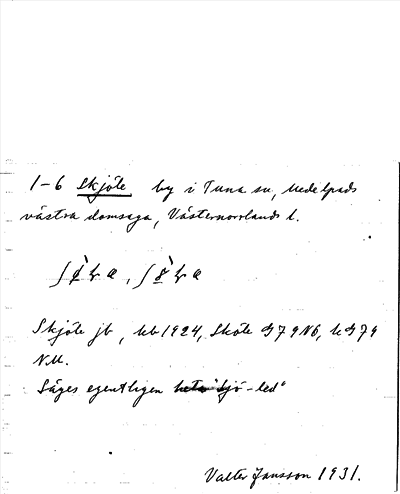 1-6 Skjöle by i Tuna sn, Medelpads
västra domsaga, Västernorrlands l.
Skjöle jb, kb 1924, Sköle G79NB, k G79
NM.
Säges egentligen heta "sjö-led"
Valter Jansson 1931.